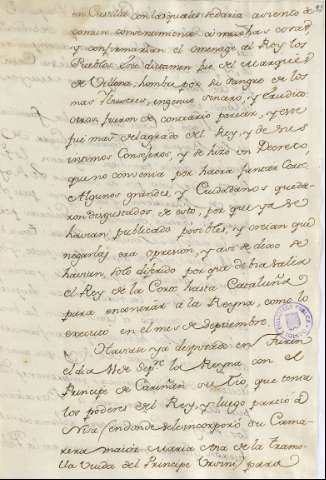 en Castilla con las quales se daria asiento de
comun consentimiento a muchas cosas,
y confirmarian el omenage al Rey los
Pueblos. Este dictamen fue del Marques
de Villena, hombre por su sangre de los
mas Ilustres, ingenuo sincero, y erudito
otros fueron de contrario parecer, y este
fue mas del agrado del Rey, y de sus
intimos Consejeros, y se hizo un Decreto
que no convenia por haora juntar Cortes
Algunos grandes y Ciudadanos queda-
ron disgustados de esto, por que ya se
havian publicado posibles, y creian que
negarlas era opresion, y así se dexo se
havian, solo diferido por que debia salir
el Rey de la Corte hasta Cataluña
para encontrar a la Reyna, como lo
executo en el mes de Septiembre.
Haviase ya desposado en Turin
el dia 11 de Sepre la Reyna con el
Principe de Cariñan su tio, que tenia
los poderes del Rey, y luego partio a
Niza (en donde se les incorporò su Cama-
rera maior Maria Ana de la Tramo-
lla Viuda del Principe Ursini) para